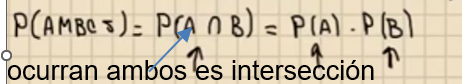 P(AMBOS) = P(A ∩ B) = P(A) · P(B)
ocurran ambos es intersección